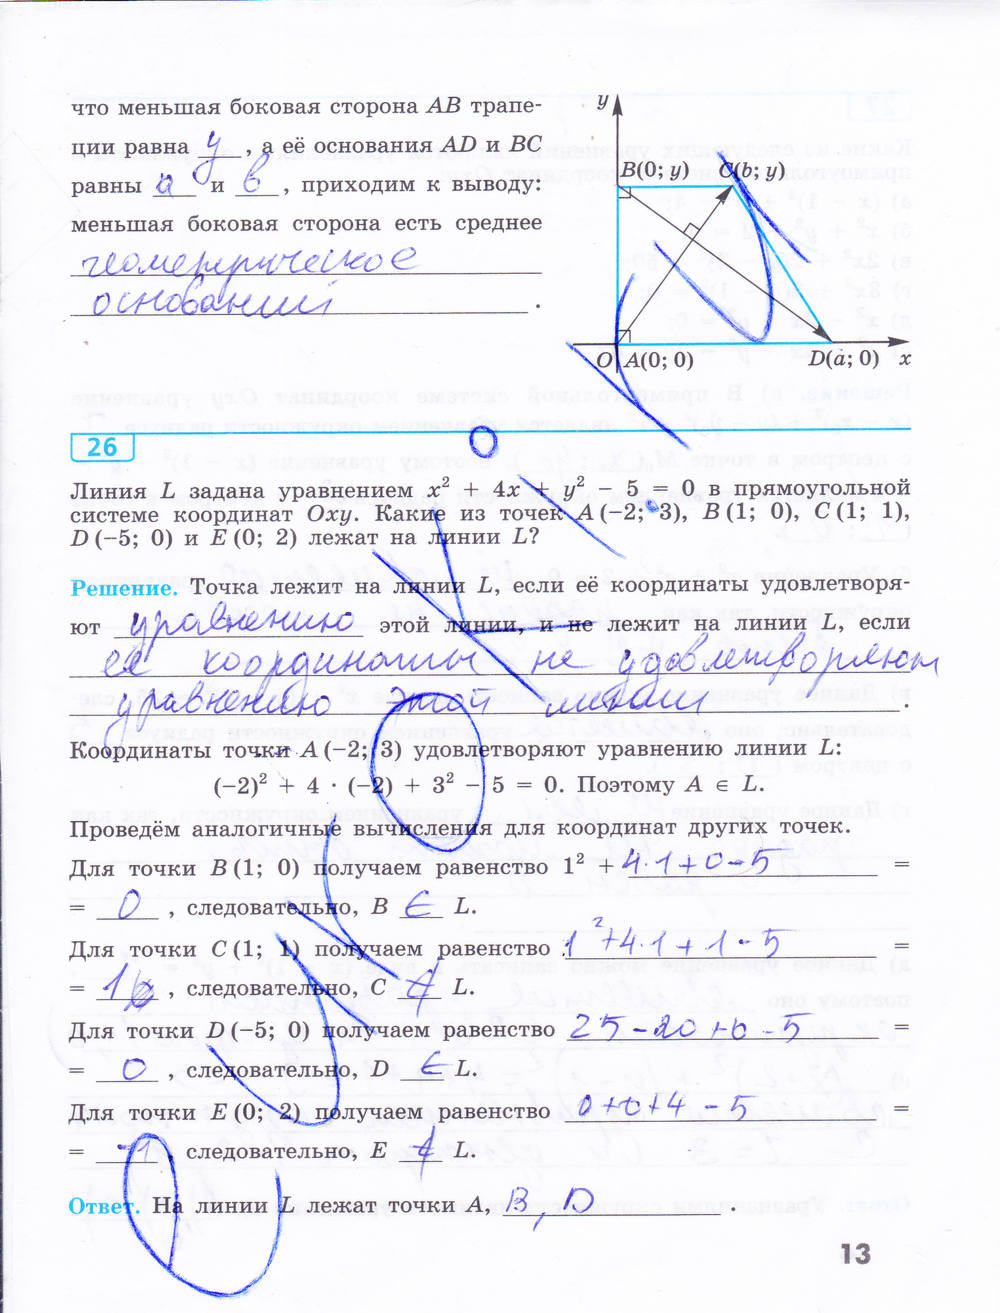 что меньшая боковая сторона AB трапе-
ции равна y , а её основания AD и BC
равны a и b , приходим к выводу:
меньшая боковая сторона есть среднее
геометрическое
оснований .
y
B(0; y) C(b; y)
O A(0; 0) D(a; 0) x
26
Линия L задана уравнением x² + 4x + y² − 5 = 0 в прямоугольной
системе координат Oxy. Какие из точек A(−2; 3), B(1; 0), C(1; 1),
D(−5; 0) и E(0; 2) лежат на линии L?
Решение. Точка лежит на линии L, если её координаты удовлетворя-
ют уравнению этой линии, и не лежит на линии L, если
её координаты не удовлетворяют
уравнению этой линии .
Координаты точки A(−2; 3) удовлетворяют уравнению линии L:
(−2)² + 4 · (−2) + 3² − 5 = 0. Поэтому A ∈ L.
Проведём аналогичные вычисления для координат других точек.
Для точки B(1; 0) получаем равенство 1² + 4·1+0-5 =
= 0 , следовательно, B ∈ L.
Для точки C(1; 1) получаем равенство 1²+4·1+1-5 =
= 1 , следовательно, C ∉ L.
Для точки D(−5; 0) получаем равенство 25-20+0-5 =
= 0 , следовательно, D ∈ L.
Для точки E(0; 2) получаем равенство 0+0+4-5 =
= -1 , следовательно, E ∉ L.
Ответ. На линии L лежат точки A, B, D .
13